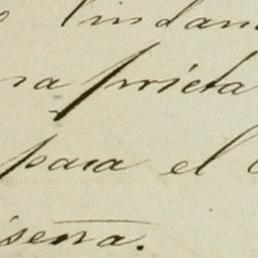 lindan
na prieta
para el
isena.